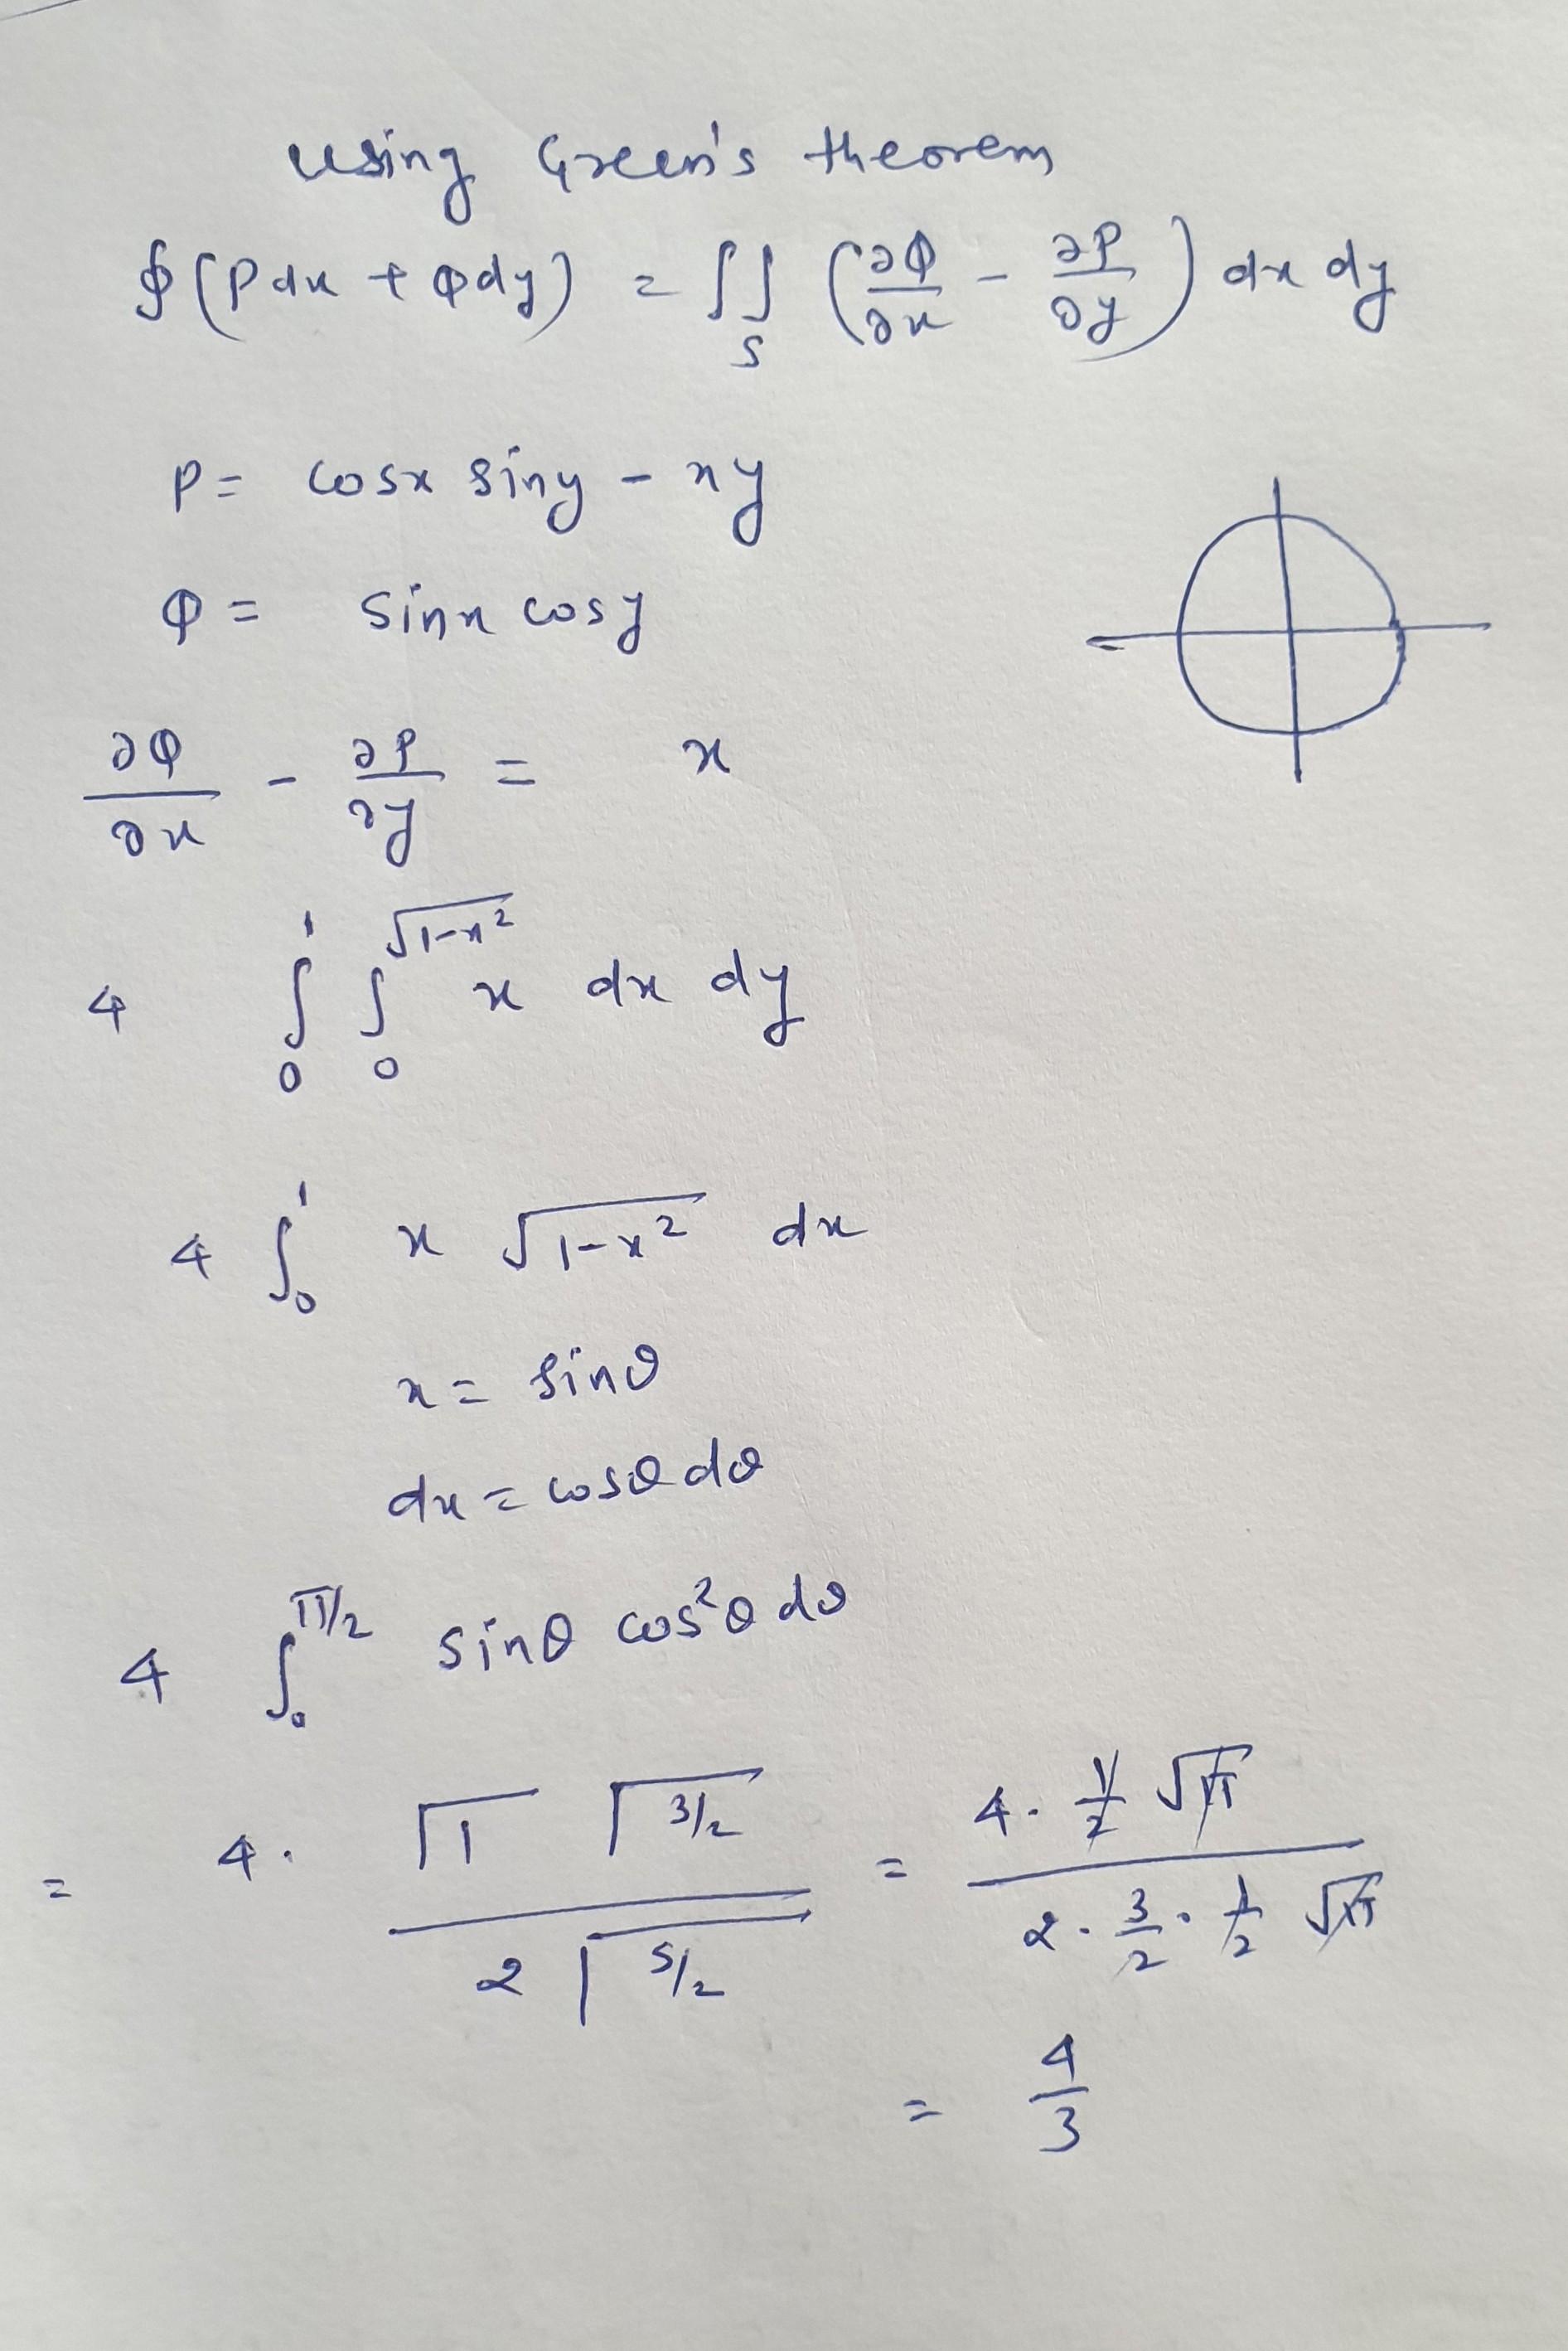 using Green's theorem
∮(Pdx + Qdy) = ∬_S (∂Q/∂x - ∂P/∂y) dx dy
P = cosx siny - xy
Q = sinx cosy
∂Q/∂x - ∂P/∂y = x
4 ∫_0^1 ∫_0^√(1-x²) x dx dy
4 ∫_0^1 x √(1-x²) dx
x = sinθ
dx = cosθ dθ
4 ∫_0^π/2 sinθ cos²θ dθ
= 4 · (Γ1 Γ3/2)/(2 Γ5/2) = (4 · 1/2 √π)/(2 · 3/2 · 1/2 √π)
= 4/3